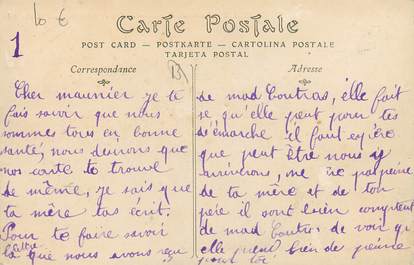 10 €
1
Carte Postale
POST CARD — POSTKARTE — CARTOLINA POSTALE
TARJETA POSTAL
Correspondance
Cher maurier je te
fais savoir que nous
sommes tous en bonne
santé, nous desirons que
nos carte te trouve
de même, je sais que
ta mère tas écrit.
Pour te faire savoir
la lettre que nous avons reçu
Adresse
de mad Coutras, élle fait
se qu'elle peut pour tes
démarche il faut espére
que peut être nous y
arriverons, ne te pas peine
de ta mère et de ton
père il sont bien content
de mad Coutras de voir qu
elle prend bien de peine
pour toi